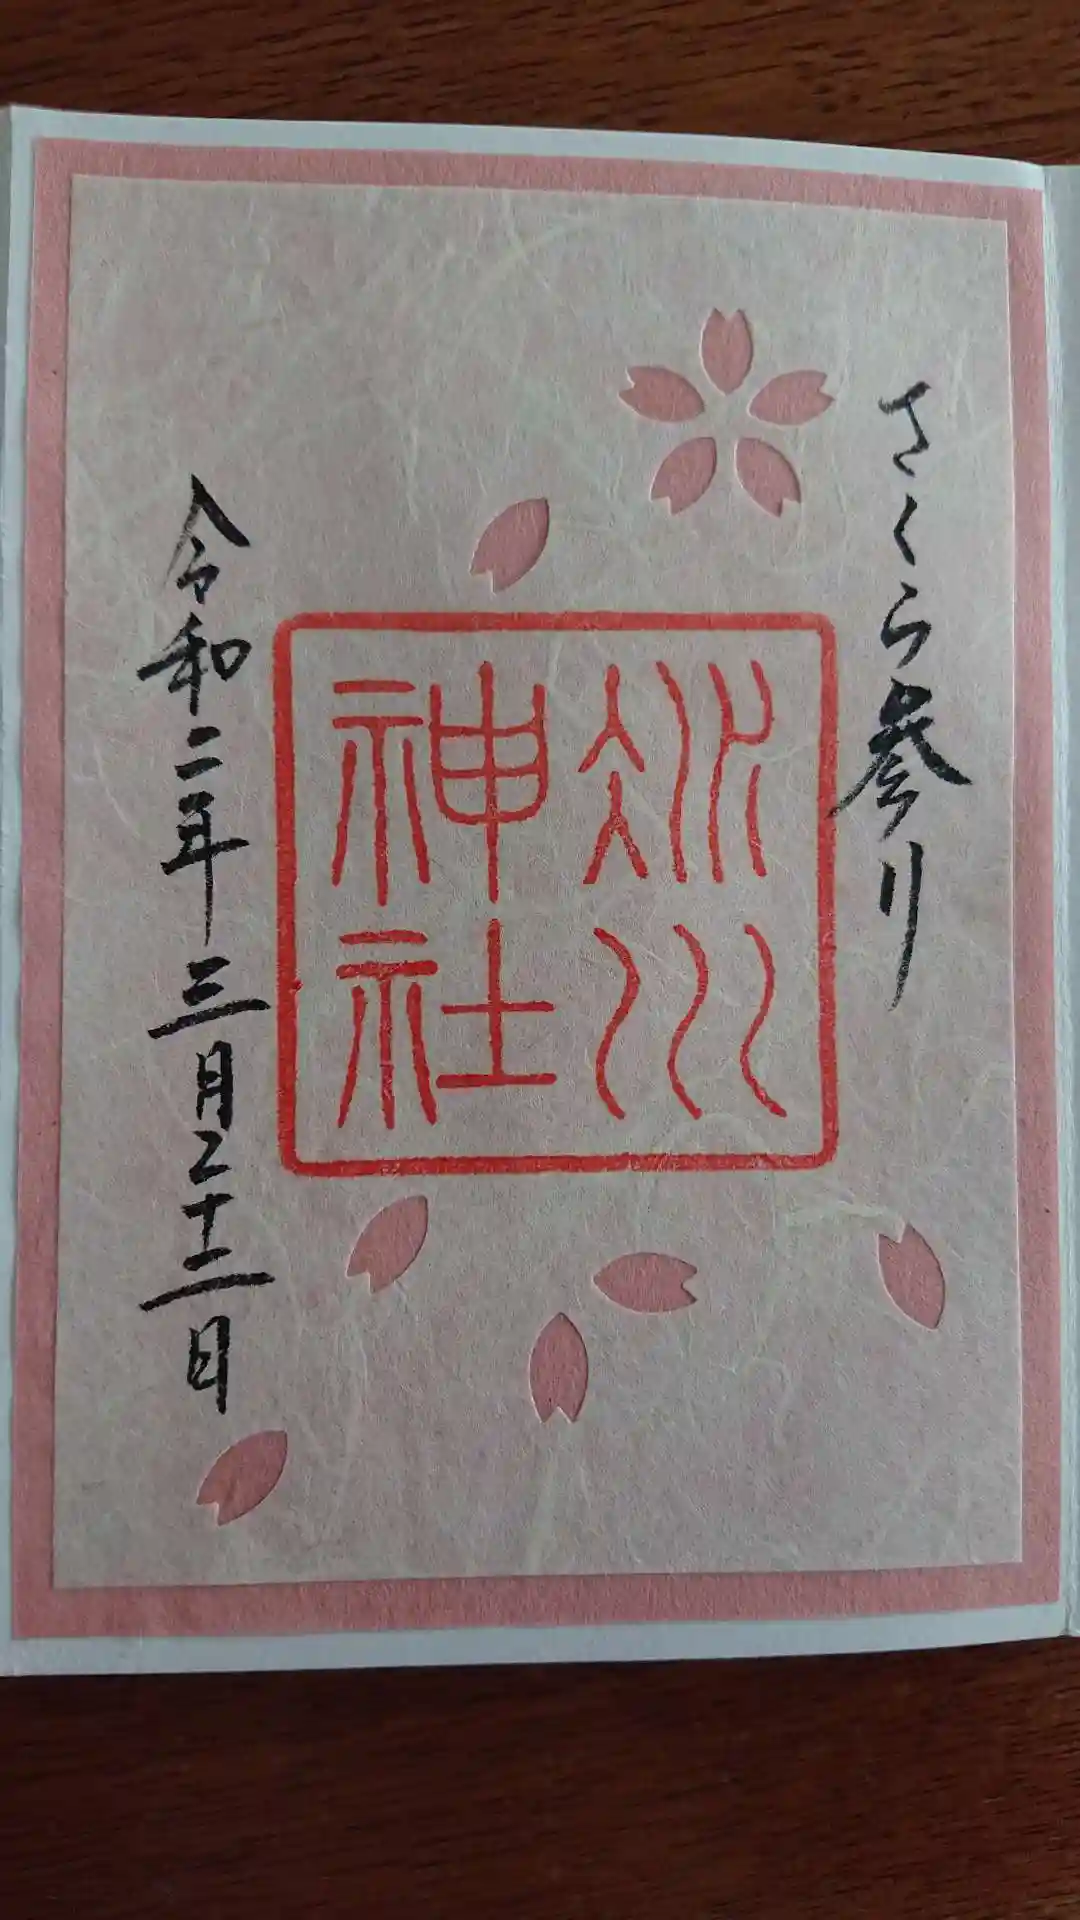 さくら参り
氷川
神社
令和二年三月二十二日